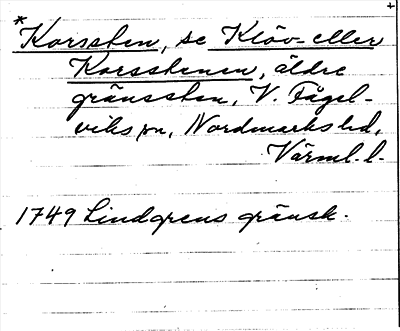 *Korssten, se Klöv- eller
Korsstenen, äldre
gränssten, V. Fågel-
viks sn, Nordmarks hd,
Värml. l.
1749 Lindgrens gränsk.